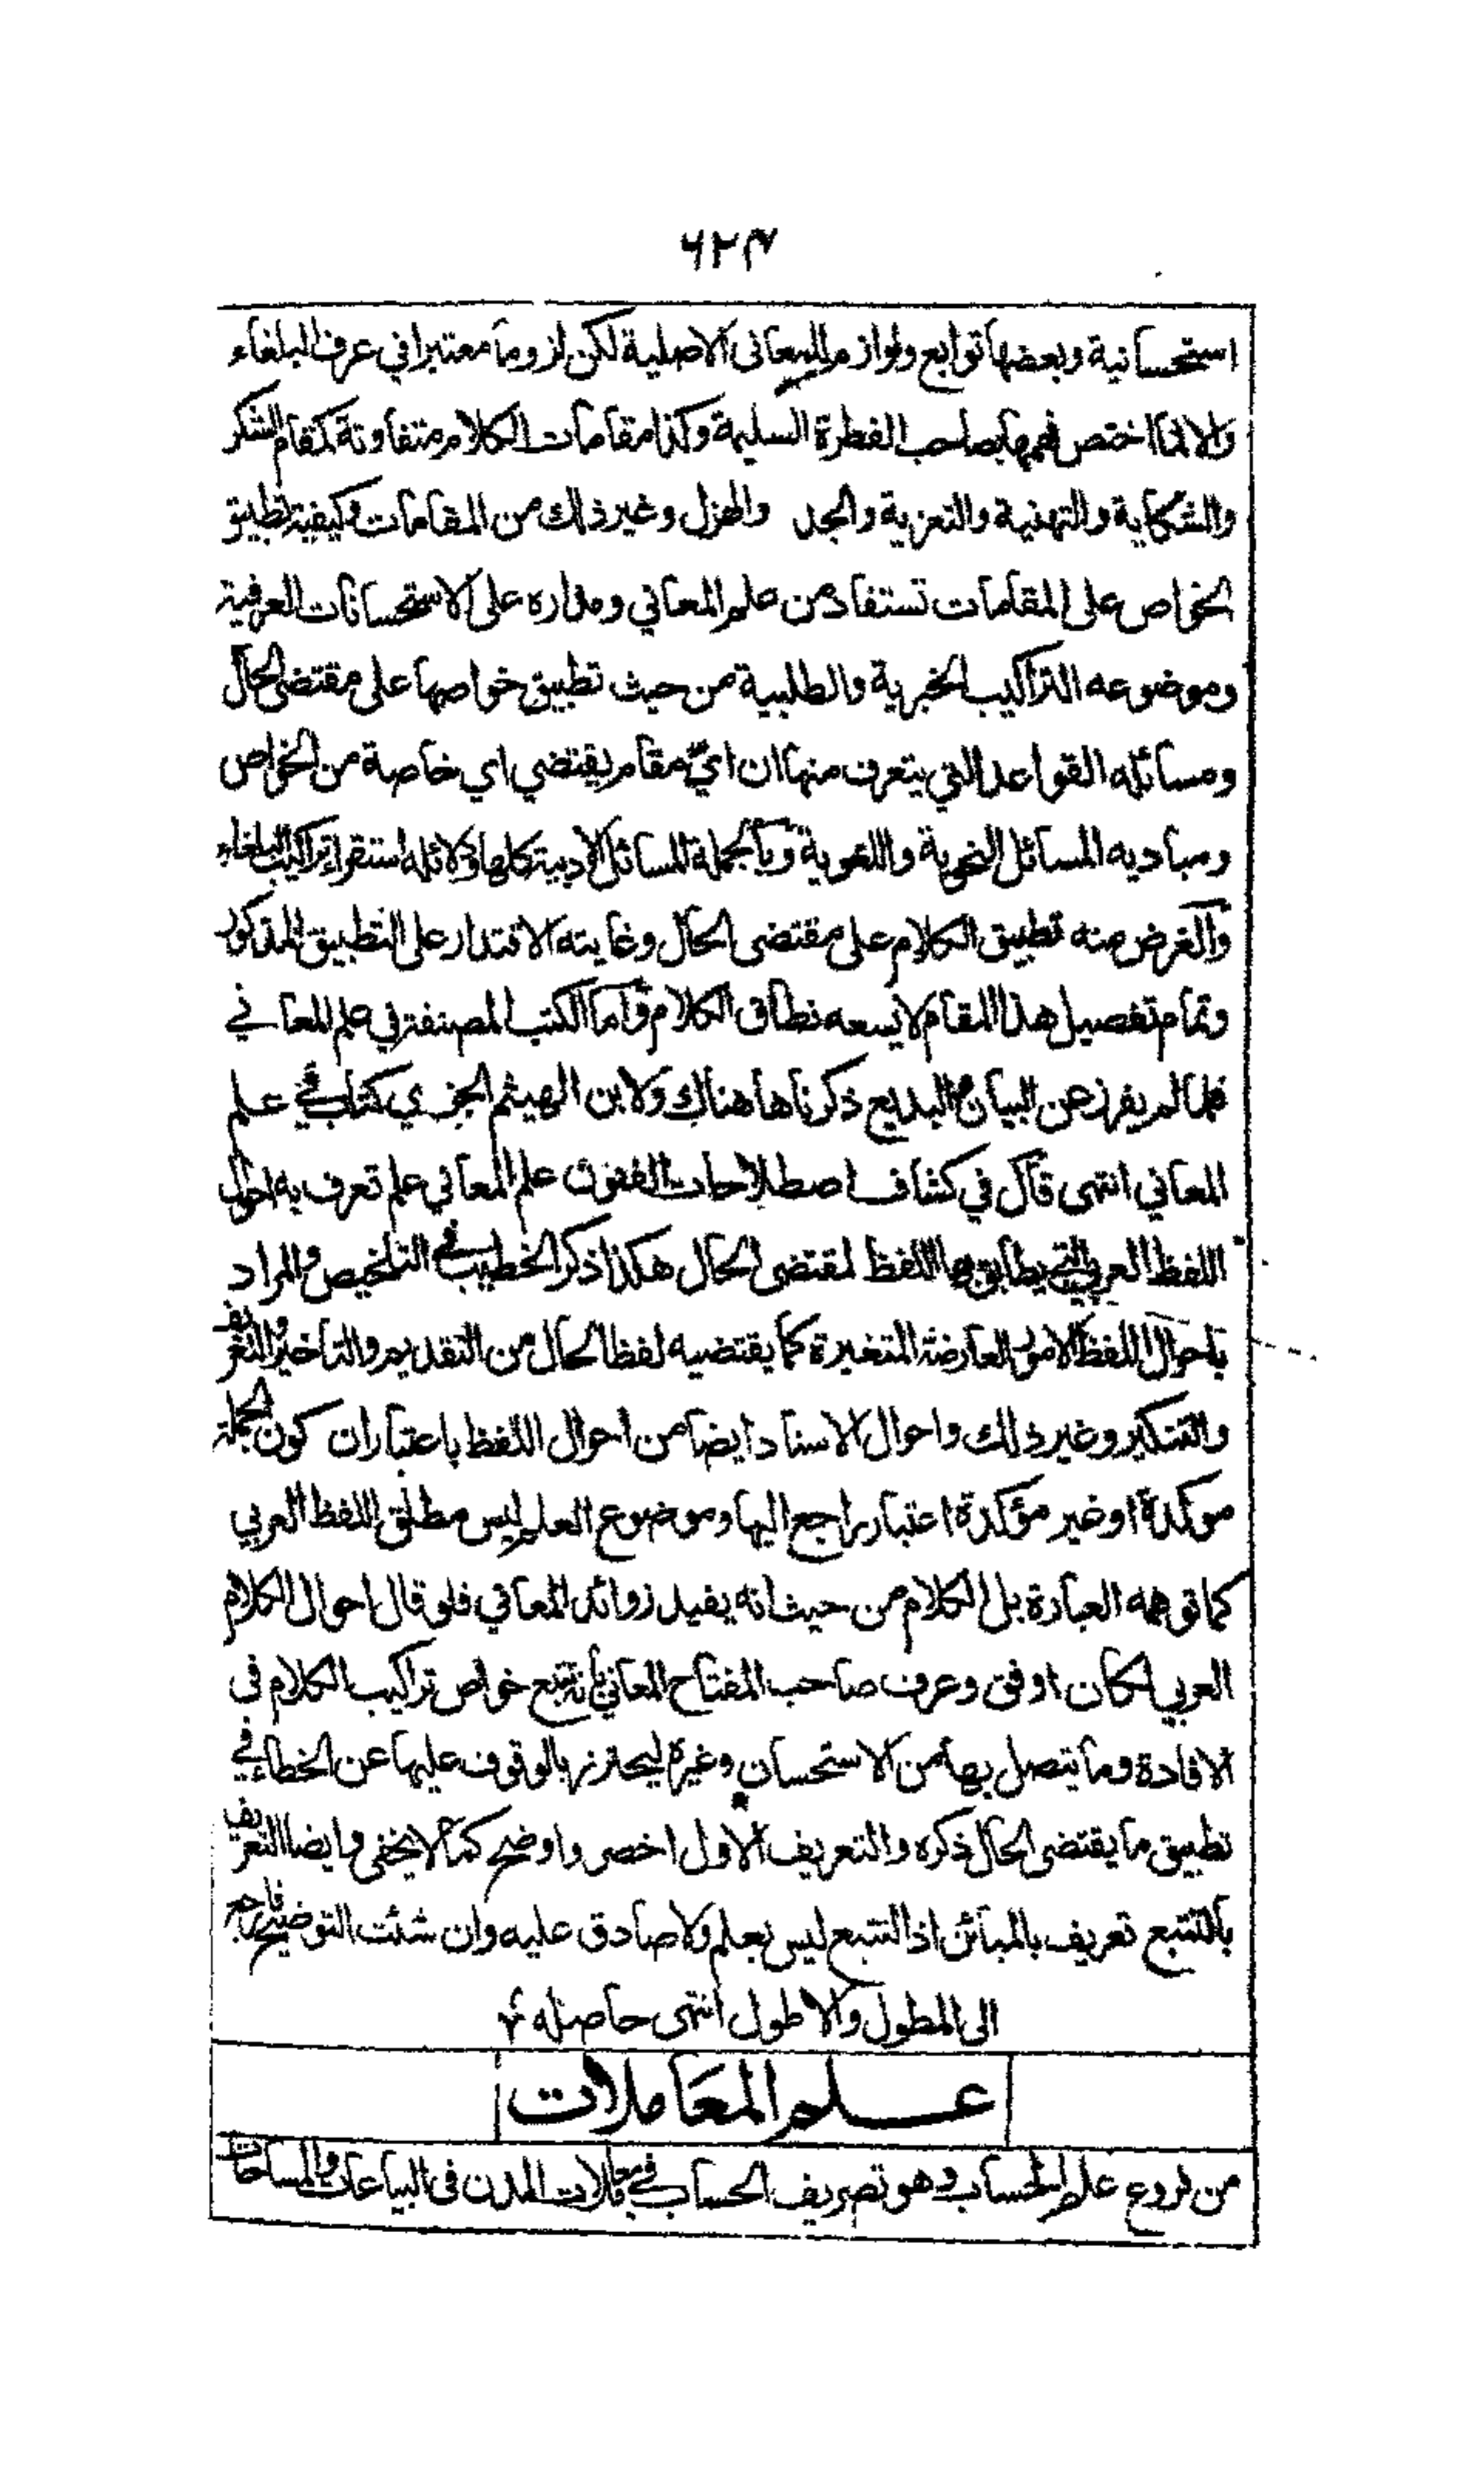 ٦٢٣
استحسانية وبعضها توابع ولوازم للمعانى الاصلية لكن لزوما معتبرا في عرف البلغاء
والا لما اختص فهمها بصاحب الفطرة السليمة وكذا مقامات الكلام متفاوتة كمقام الشكر
والشكاية والتهنية والتعزية والجد والهزل وغير ذلك من المقامات وكيفية تطبيق
الخواص على المقامات تستفاد من علم المعاني ومداره على الاستحسانات العرفية
وموضوعه التراكيب الخبرية والطلبية من حيث تطبيق خواصها على مقتضى الحال
ومسائله القواعد التي يتعرف منها ان اي مقام يقتضي اي خاصة من الخواص
ومباديه المسائل النحوية واللغوية وبالجملة المسائل الادبية كلها ودلائله استقراء تراكيب البلغاء
والغرض منه تطبيق الكلام على مقتضى الحال وغايته الاقتدار على التطبيق المذكور
وتمام تفصيل هذا المقام لا يسعه نطاق الكلام واما الكتب المصنفة في علم المعاني
فلما لم يفرز عن البيان والبديع ذكرناها هناك ولابن الهيثم الجزري كتاب في علم
المعاني انتهى قال في كشاف اصطلاحات الفنون علم المعاني علم تعرف به احوال
اللفظ العربي التي يطابق بها اللفظ لمقتضى الحال هكذا ذكر الخطيب في التلخيص والمراد
باحوال اللفظ الامور العارضة المتغيرة كما يقتضيه لفظ الحال من التقديم والتاخير والتعريف
والتنكير وغير ذلك واحوال الاسناد ايضا من احوال اللفظ باعتبار ان كون الجملة
موكدة او غير مؤكدة اعتبار راجع اليها وموضوع العلم ليس مطلق اللفظ العربي
كما توهمه العبارة بل الكلام من حيث انه يفيد زوائد المعاني فلو قال احوال الكلام
العربي لكان اوفق وعرف صاحب المفتاح المعاني بانه تتبع خواص تراكيب الكلام فى
الافادة وما يتصل بها من الاستحسان وغيره ليحترز بالوقوف عليها عن الخطاء في
تطبيق ما يقتضى الحال ذكره والتعريف الاول اخصر واوضح كما لا يخفى وايضا التعريف
بالتتبع تعريف بالمبائن اذ التتبع ليس بعلم ولا صادق عليه وان شئت التوضيح فارجع
الى المطول والاطول انتهى حاصله
علم المعاملات
من فروع علم الحساب وهو تصريف الحساب في معاملات المدن فى البياعات والمساحات